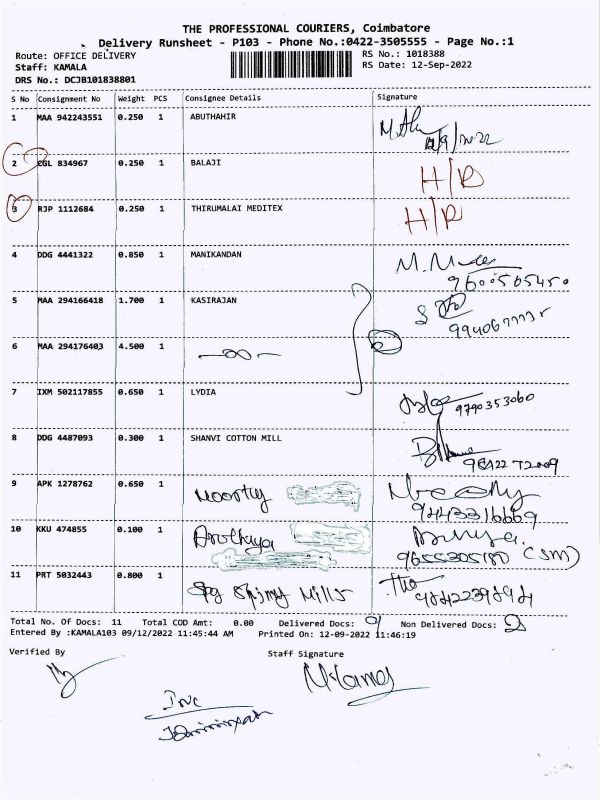 THE PROFESSIONAL COURIERS, Coimbatore
Delivery Runsheet - P103 - Phone No.:0422-3505555 - Page No.:1
Route: OFFICE DELIVERY RS No.: 1018388
Staff: KAMALA RS Date: 12-Sep-2022
DRS No.: DCJB101838801
S No Consignment No Weight PCS Consignee Details Signature
1 MAA 942243551 0.250 1 ABUTHAHIR
12/9/2022
2 CGL 834967 0.250 1 BALAJI H/D
3 RJP 1112684 0.250 1 THIRUMALAI MEDITEX H/D
4 DDG 4441322 0.850 1 MANIKANDAN
9600505450
5 MAA 294166418 1.700 1 KASIRAJAN
6 MAA 294176403 4.500 1
7 IXM 502117855 0.650 1 LYDIA
9790353060
8 DDG 4487093 0.300 1 SHANVI COTTON MILL
98422 72009
9 APK 1278762 0.650 1 Moorthy
9443316669
10 KKU 474855 0.100 1
9655305180 (SM)
11 PRT 5032443 0.800 1 Mills
Total No. Of Docs: 11 Total COD Amt: 0.00 Delivered Docs: 9 Non Delivered Docs: 2
Entered By :KAMALA103 09/12/2022 11:45:44 AM Printed On: 12-09-2022 11:46:19
Verified By Staff Signature